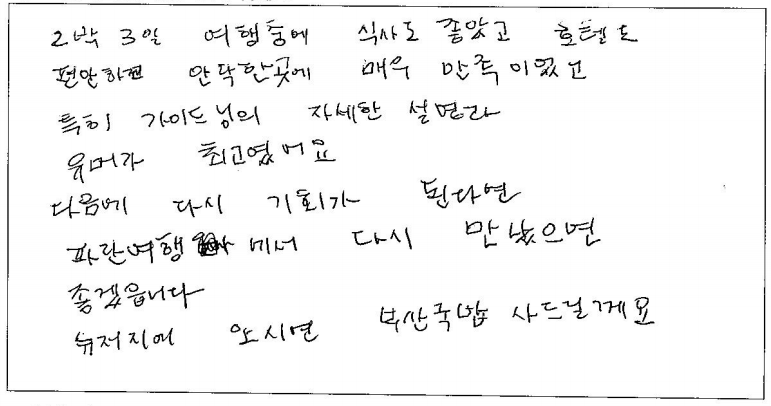 2박 3일 여행중에 식사도 좋았고 호텔도
편안하면 안락한곳에 매우 만족이었고
특히 가이드님의 자세한 설명과
유머가 최고였어요
다음에 다시 기회가 된다면
파란여행 에서 다시 만났으면
좋겠습니다
뉴저지에 오시면 부산국밥 사드릴께요